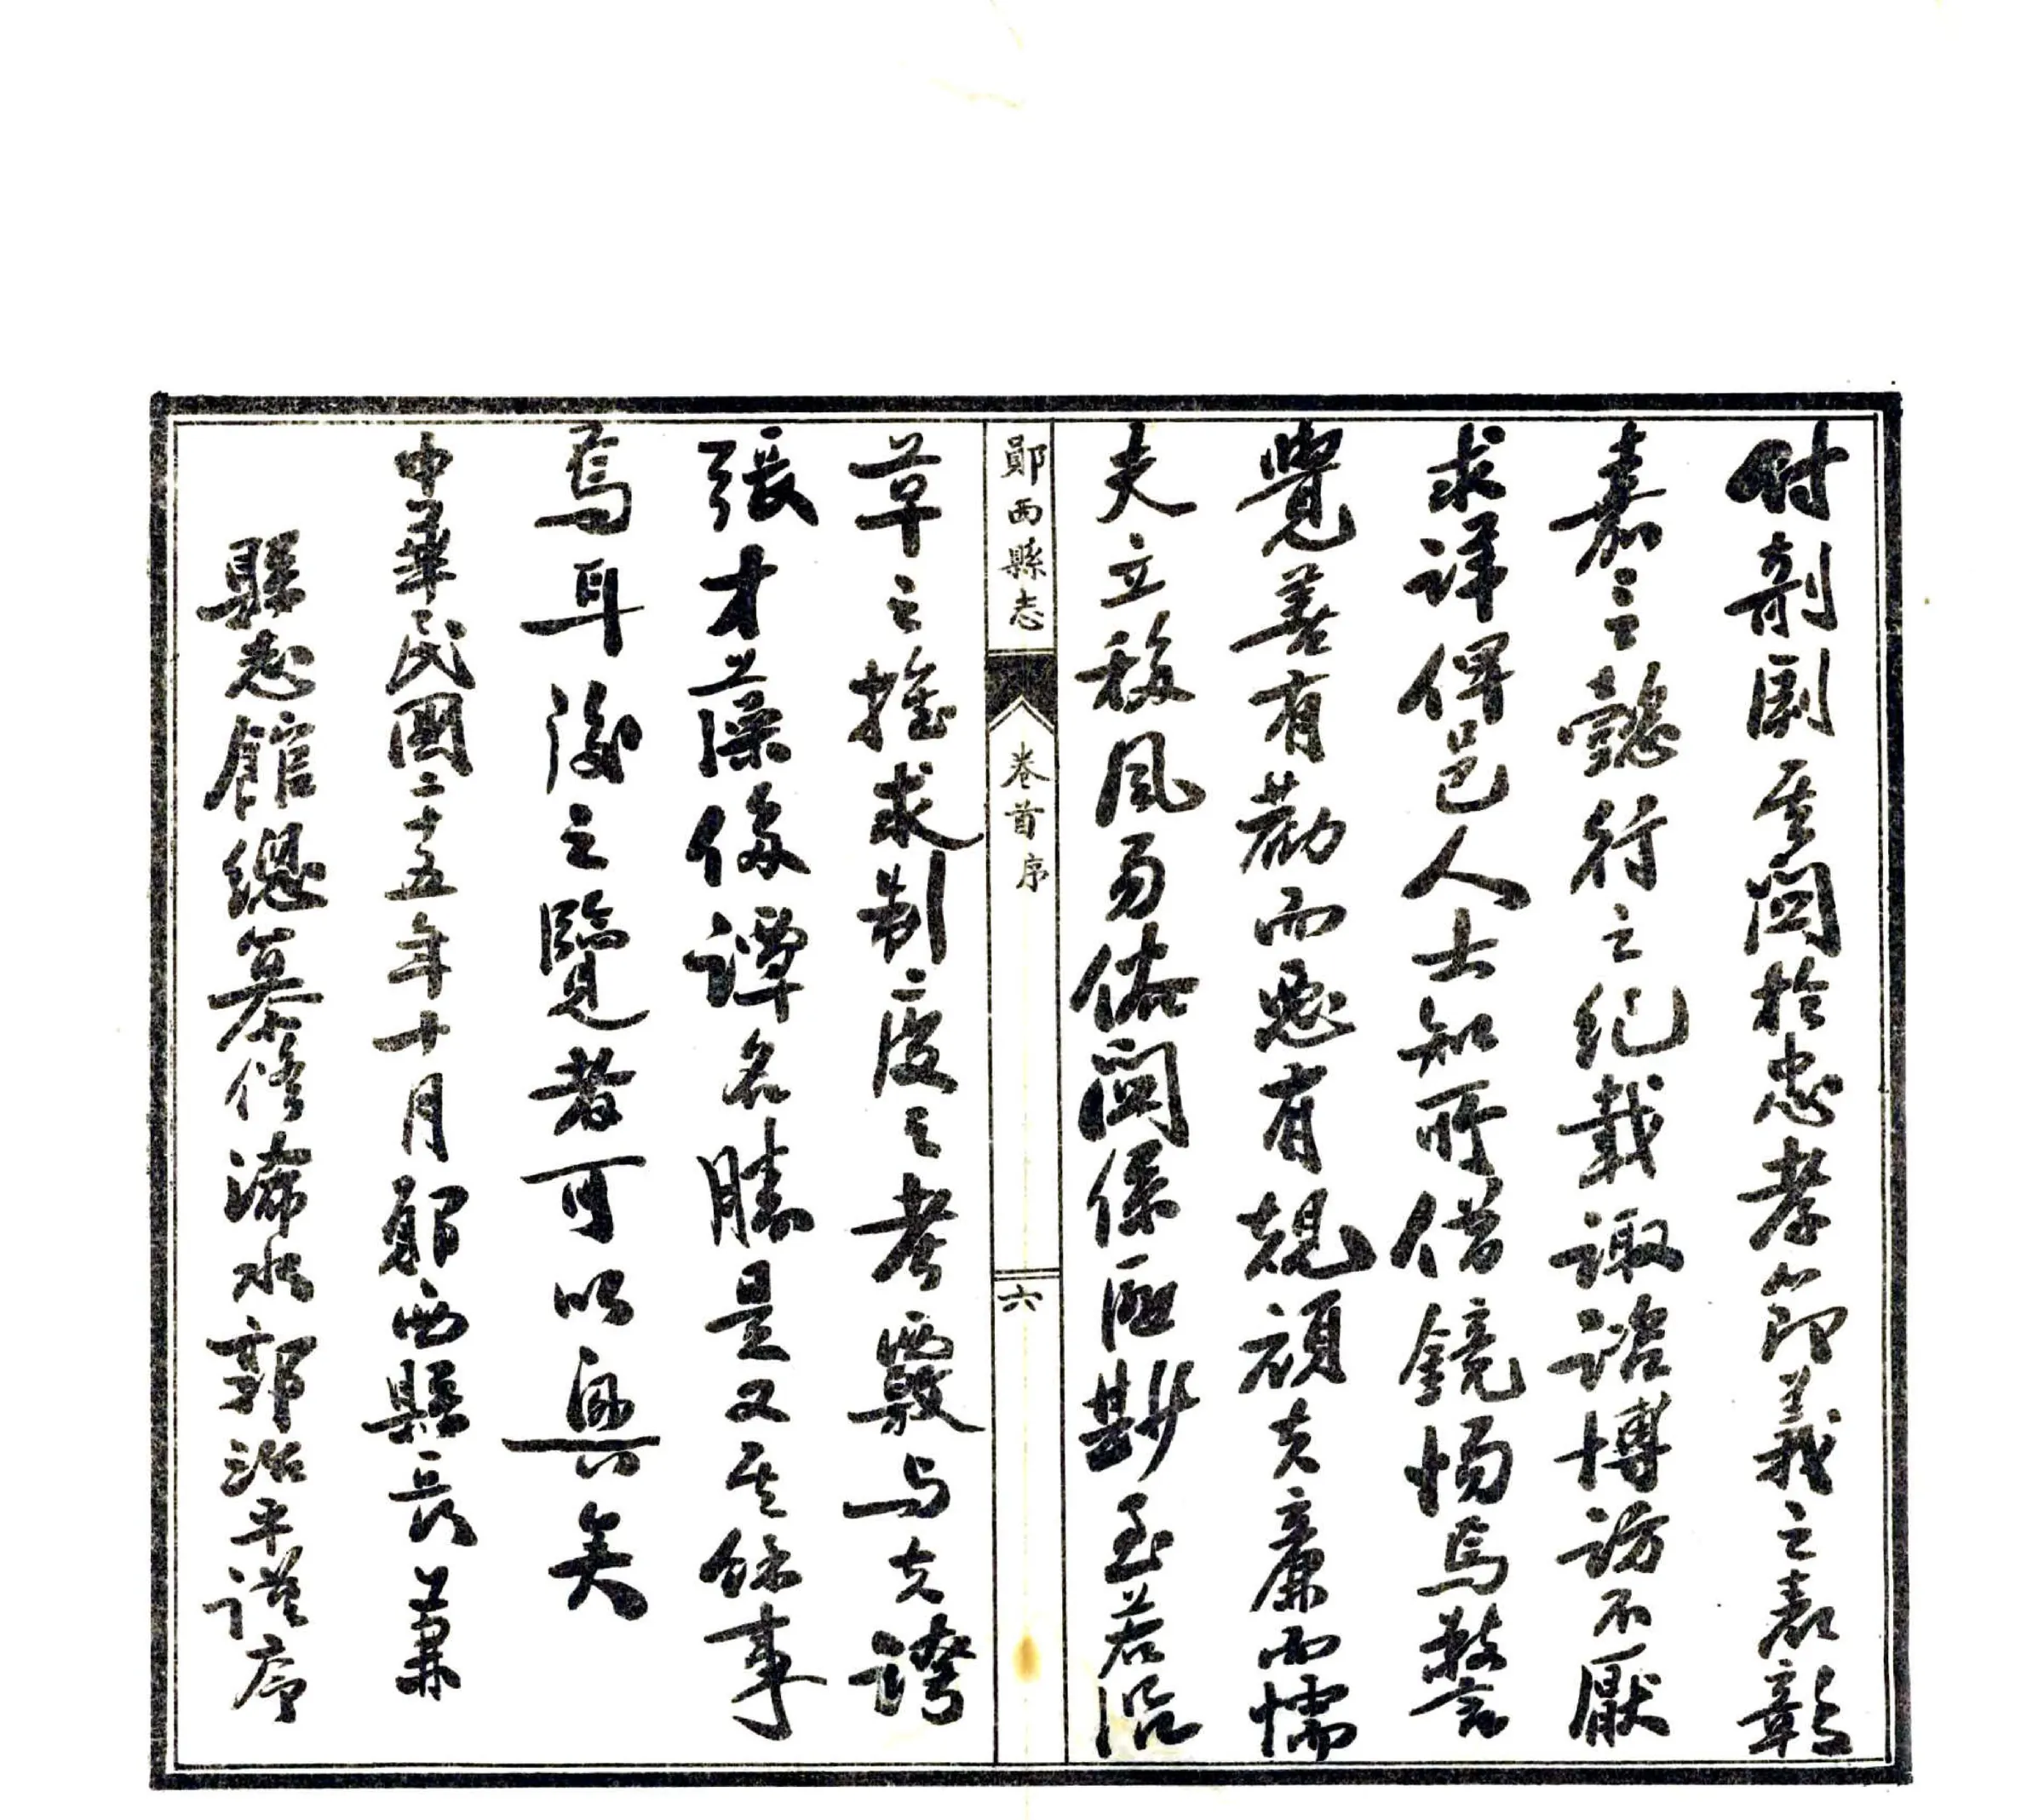 付剞劂至關於忠孝節義之表彰
嘉言懿行之紀載諏諮博訪不厭
求詳俾邑人士知所借鏡惕焉警
覺善有勸而惡有規頑夫廉而懦
夫立移風易俗關係匪尠至若沿
鄖西縣志
卷首序
六
革之搜求制度之考覈与夫誇
張才藻侈譚名勝是又其餘事
焉耳後之覽者可以興矣
中華民國二十五年十月鄖西縣長兼
縣志館總纂修浠水郭治平謹序